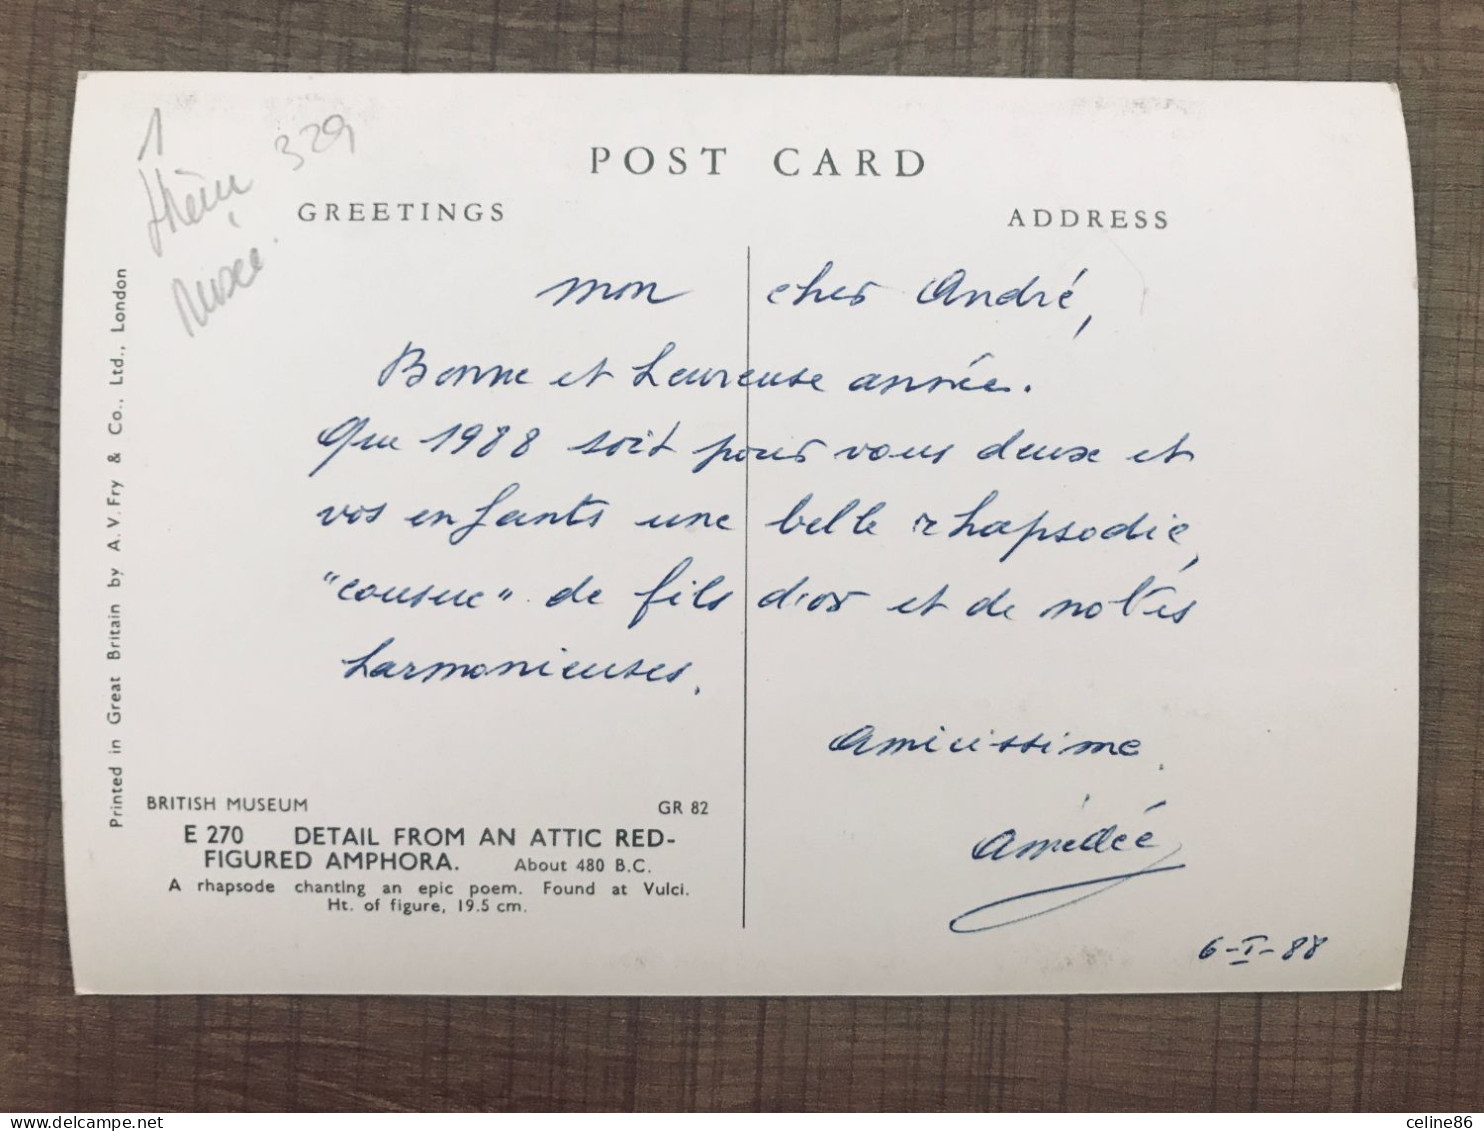 1
329
Musée.
POST CARD
GREETINGS
ADDRESS
Mon cher André,
Bonne et heureuse année.
Que 1988 soit pour vous deux et
vos enfants une belle rhapsodie,
"cousue" de fils d'or et de notes
harmonieuses.
Amicissime.
Amédée
6-I-88
Printed in Great Britain by A. V. Fry & Co., Ltd., London
BRITISH MUSEUM GR 82
E 270 DETAIL FROM AN ATTIC RED-
FIGURED AMPHORA. About 480 B.C.
A rhapsode chanting an epic poem. Found at Vulci.
Ht. of figure, 19.5 cm.
delcampe.net
celine86